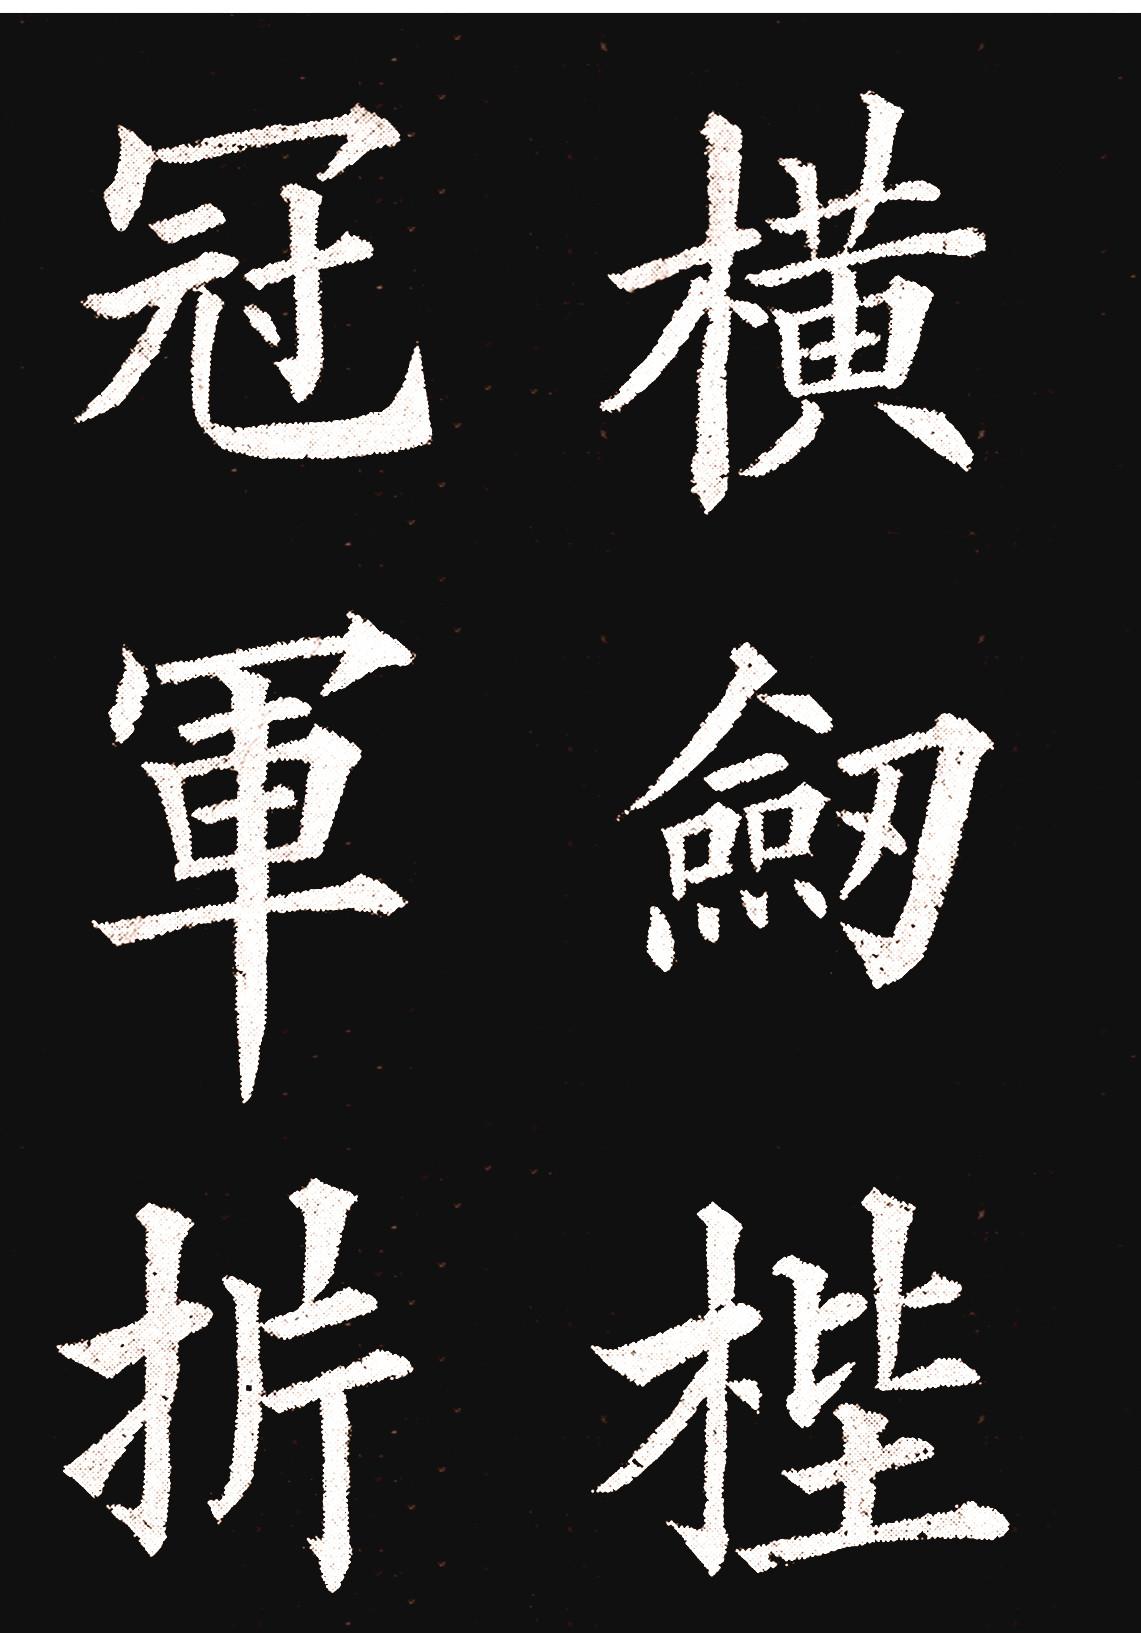 横劒梐
冠軍折